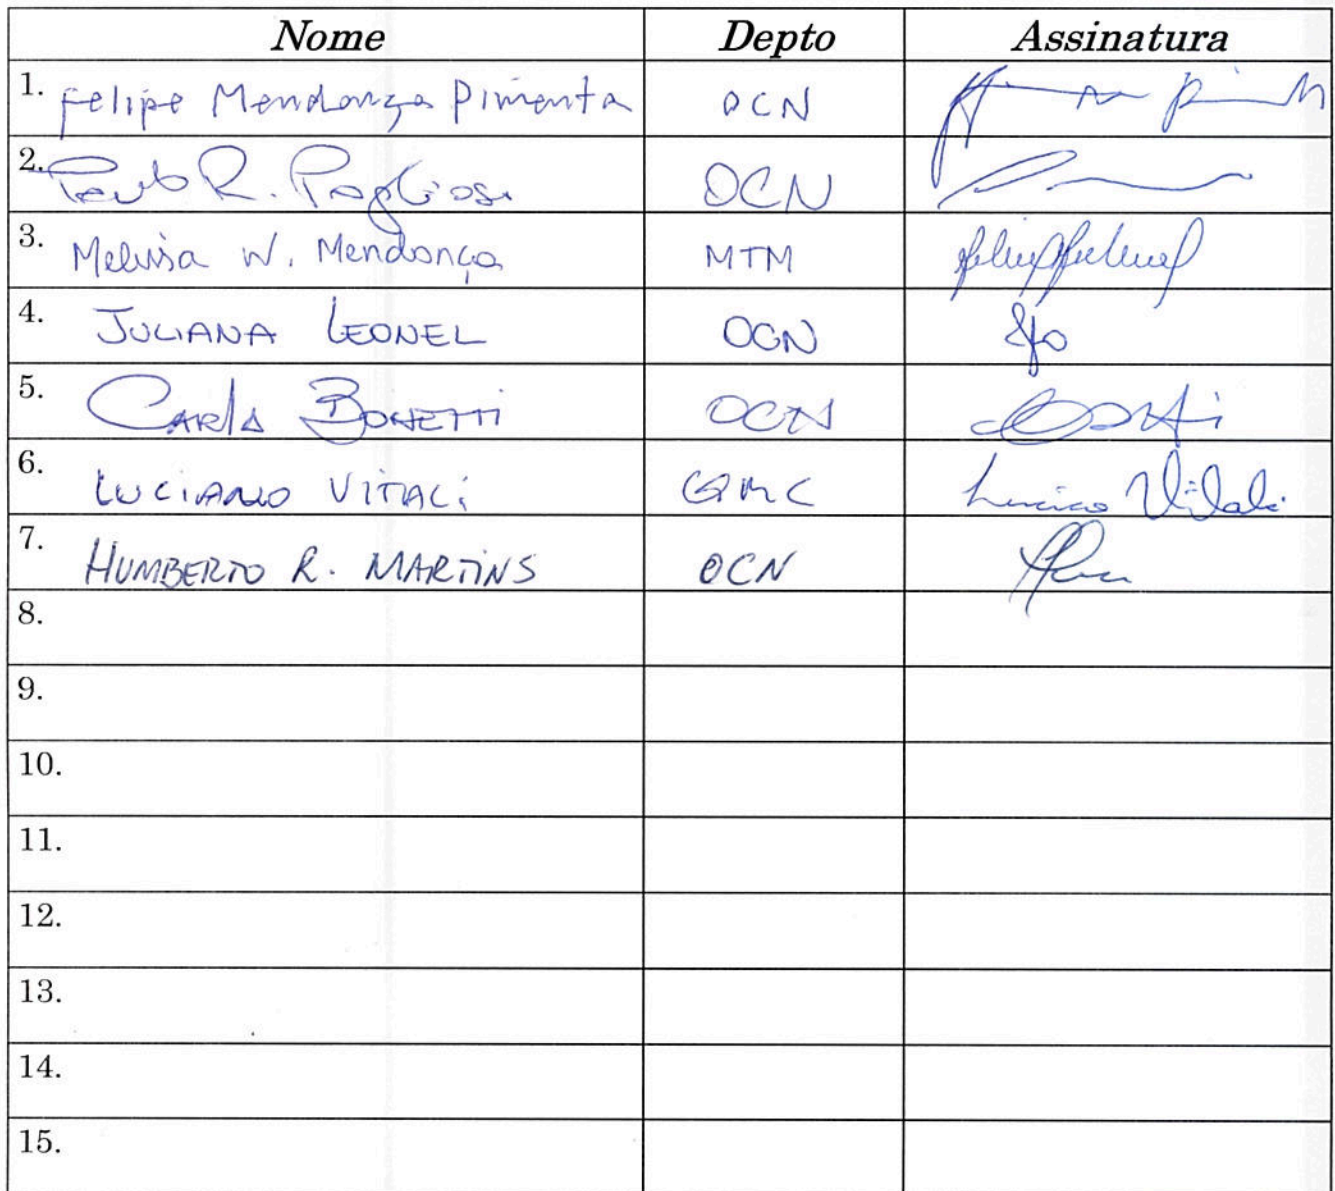 Nome Depto Assinatura
1. Felipe Mendonça Pimenta OCN
2. Paulo R. Pagliosa OCN
3. Melissa W. Mendonça MTM
4. JULIANA LEONEL OCN
5. CARLA BONETTI OCN
6. LUCIANO VITALI QMC Luciano Vitali
7. HUMBERTO R. MARTINS OCN
8.
9.
10.
11.
12.
13.
14.
15.